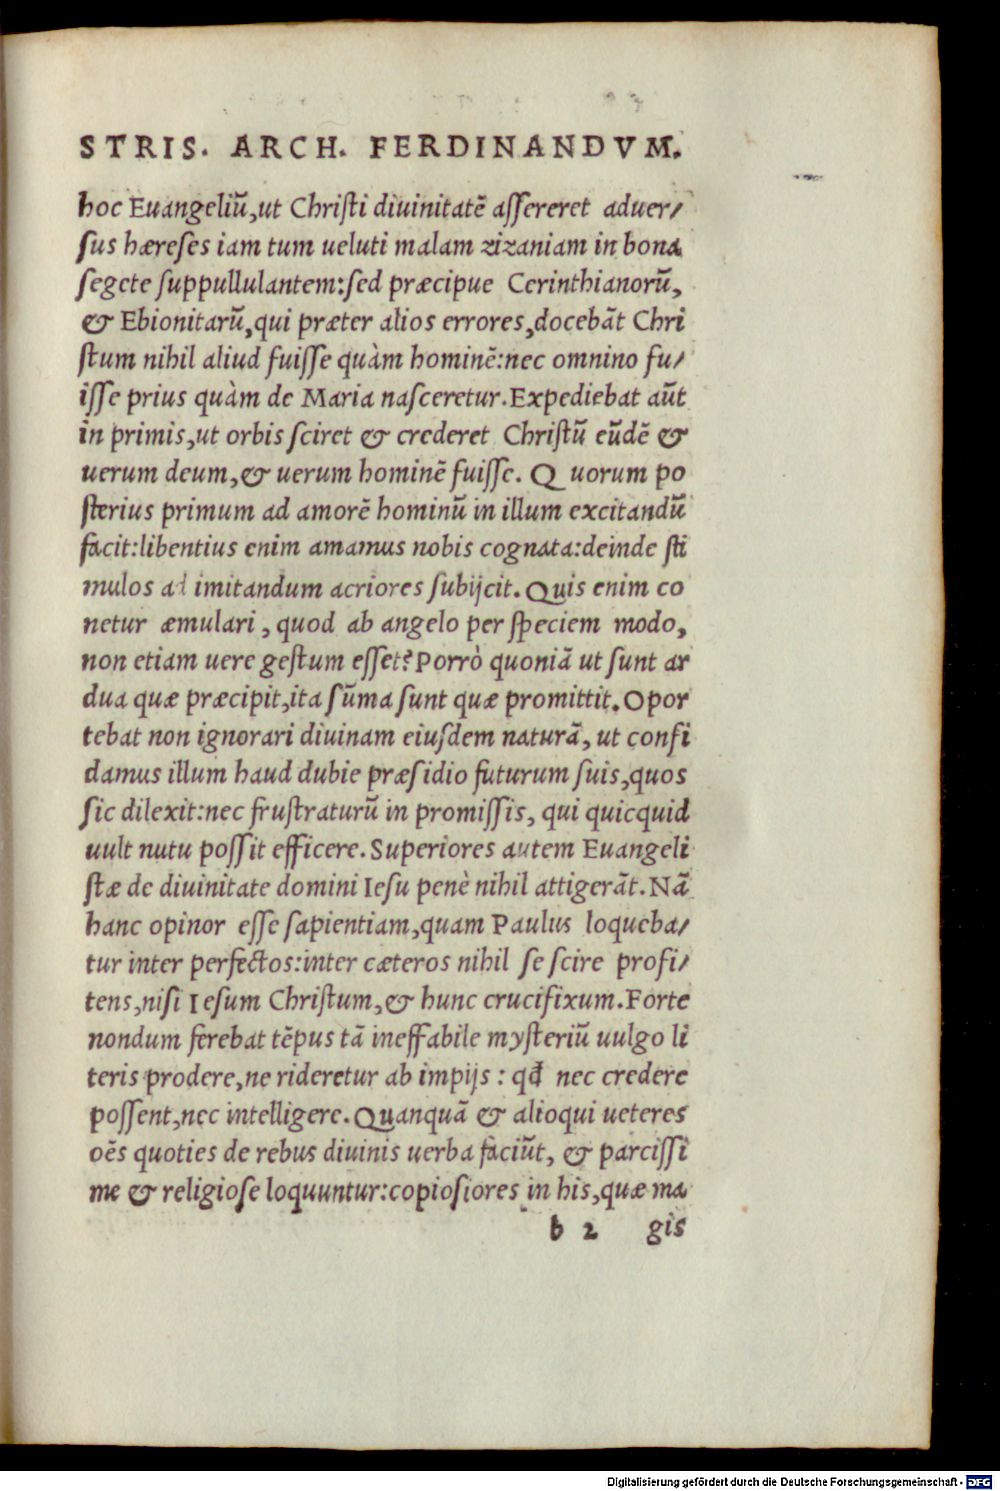 STRIS. ARCH. FERDINANDVM.
hoc Euangeliū,ut Christi diuinitatē assereret aduer/
sus hæreses iam tum ueluti malam zizaniam in bona
segete suppullulantem:sed præcipue Cerinthianorū,
& Ebionitarū,qui præter alios errores,docebāt Chri
stum nihil aliud fuisse quàm hominē:nec omnino fu/
isse prius quàm de Maria nasceretur.Expediebat aūt
in primis,ut orbis sciret & crederet Christū eūdē &
uerum deum,& uerum hominē fuisse. Q uorum po
sterius primum ad amorē hominū in illum excitandū
facit:libentius enim amamus nobis cognata:deinde sti
mulos ad imitandum acriores subijcit. Quis enim co
netur æmulari, quod ab angelo per speciem modo,
non etiam uere gestum esset? Porrò quoniā ut sunt ar
dua quæ præcipit,ita sūma sunt quæ promittit. Opor
tebat non ignorari diuinam eiusdem naturā, ut confi
damus illum haud dubie præsidio futurum suis,quos
sic dilexit:nec frustraturū in promissis, qui quicquid
uult nutu possit efficere. Superiores autem Euangeli
stæ de diuinitate domini Iesu penè nihil attigerāt. Nā
hanc opinor esse sapientiam,quam Paulus loqueba/
tur inter perfectos:inter cæteros nihil se scire profi/
tens,nisi Iesum Christum,& hunc crucifixum.Forte
nondum ferebat tēpus tā ineffabile mysteriū uulgo li
teris prodere,ne rideretur ab impijs : qđ nec credere
possent,nec intelligere. Quanquā & alioqui ueteres
oēs quoties de rebus diuinis uerba faciūt, & parcissi
me & religiose loquuntur:copiosiores in his,quæ ma
b 2 gis
Digitalisierung gefördert durch die Deutsche Forschungsgemeinschaft - DFG